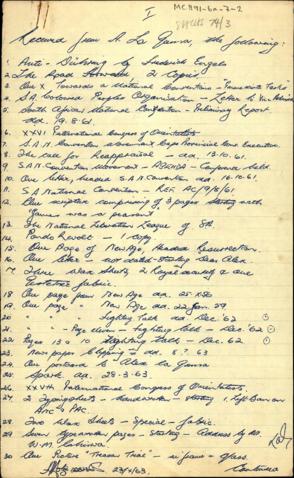 I
MCH91-6a-7-2
74/3
Received from A. La Guma, the following:
1. Anti-Duhring by Frederick Engels
2. The Road Forward, 2 Copies
3. One X Towards a National Convention - "Immediate Tasks"
4. S.A. Coloured Peoples Organisation - Letter to
5. South African National Convention - Preliminary Report
dd. 19.8.61.
6. XXVI International Congress of Orientalists
7. S.A.N. Convention movement Cape Provincial Conv Executive
8. The case for Reappraisal - dd. 13.10.61.
9. S.A.N. Convention movement - Conference held
10. One letter, headed S.A.N. Convention dd. 16.10.61.
11. S.A National Convention - Ref. AC/9/8/61
12. One scripture comprising of 3 pages stating with
"James was a peasant"
13. The National Liberation League of SA.
14. Pondo Revolt - 1 copy
15. One Page of New Age, Headed Resurrection.
16. One letter - not dated - stating Dear Alex
17. Three wax sheets, 2 Royal and 1 one
fabric.
18. One page from New Age dd. 25.
19. One page - New Age dd. 22 Jan. 59.
20. " " - Fighting Talk dd - Dec. '62
21. " " - Page eleven - Fighting Talk - Dec. '62
22. Pages 13 & 10 Fighting Talk - Dec. 62
23. News paper clipping - dd. 8.?.63
24. One postcard to Alex La Guma
25. Spark dd. 28.3.63.
26. XXVth International Congress of Orientalists.
27. 2 Typing sheets - handwritten - stating 1. Left Ban on
ANC & PAC.
28. Two wax sheets - Special - fabric.
29. Seven typewritten pages - stating - Address by Mr.
W.M.
30. One Poster "Treason Trial" - in frame - glass.
23/10/63.
Continued